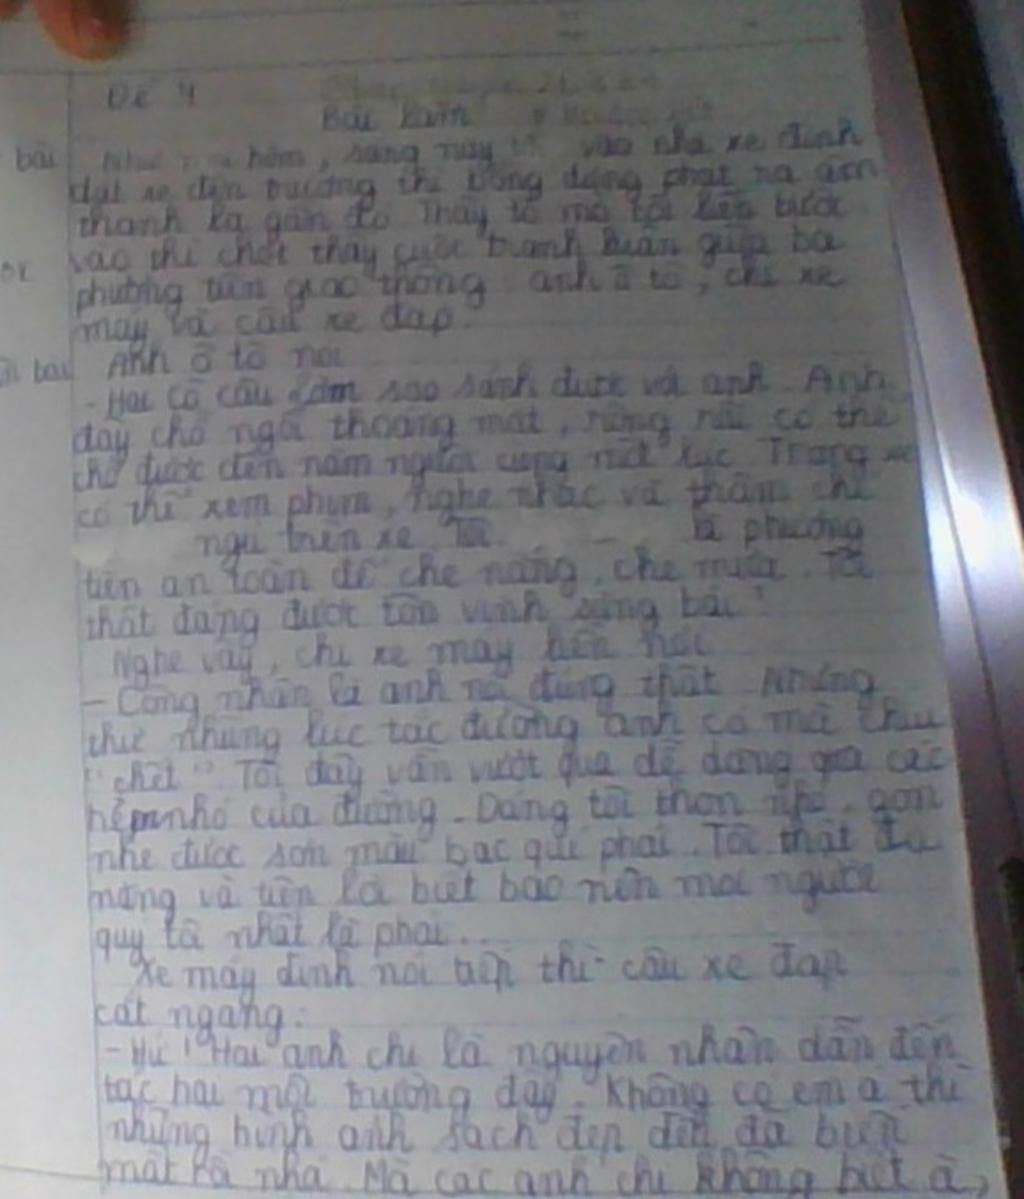 Đề 4
Bài làm
bài
Như hôm, sáng nay vào nhà xe định
dắt xe đến trường thì bỗng dưng phát ra âm
thanh lạ gần đó. Thấy tò mò tôi liền bước
vào thì chợt thấy cuộc tranh luận giữa ba
phương tiện giao thông anh ô tô, chị xe
máy và cậu xe đạp.
bài
Anh ô tô nói
- Hai cô cậu làm sao sánh được với anh. Anh
đây chỗ ngồi thoáng mát, rộng rãi có thể
chở được đến năm người cùng một lúc. Trong xe
có thể xem phim, nghe nhạc và thậm chí
ngủ trên xe. Tôi là phương
tiện an toàn để che nắng, che mưa. Tôi
thật đáng được tôn vinh
Nghe vậy, chị xe máy liền nói
- Công nhận là anh nói đúng thật. Nhưng
thử những lúc tắc đường anh có mà chịu
"chết". Tôi đây vẫn vượt qua dễ dàng qua các
hẻm nhỏ của đường. Dáng tôi thon nhỏ, gọn
nhẹ được sơn màu bạc quí phái. Tôi thật
năng và tiện lợi biết bao nên mọi người
quý tôi nhất là phải...
Xe máy định nói tiếp thì cậu xe đạp
cắt ngang:
- Hư! Hai anh chị là nguyên nhân dẫn đến
tác hại môi trường đấy. Không có em á thì
những hình ảnh sạch đẹp đến đã biến
mất rồi nhá. Mà các anh chị không biết à,